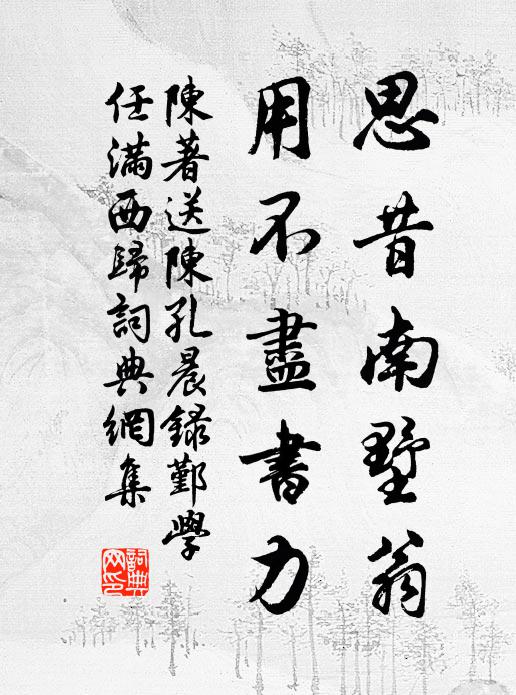 思昔南墅翁
用不盡書力
陳著送陳孔晨録鄞學
任滿西歸詞典網集
詞典網印